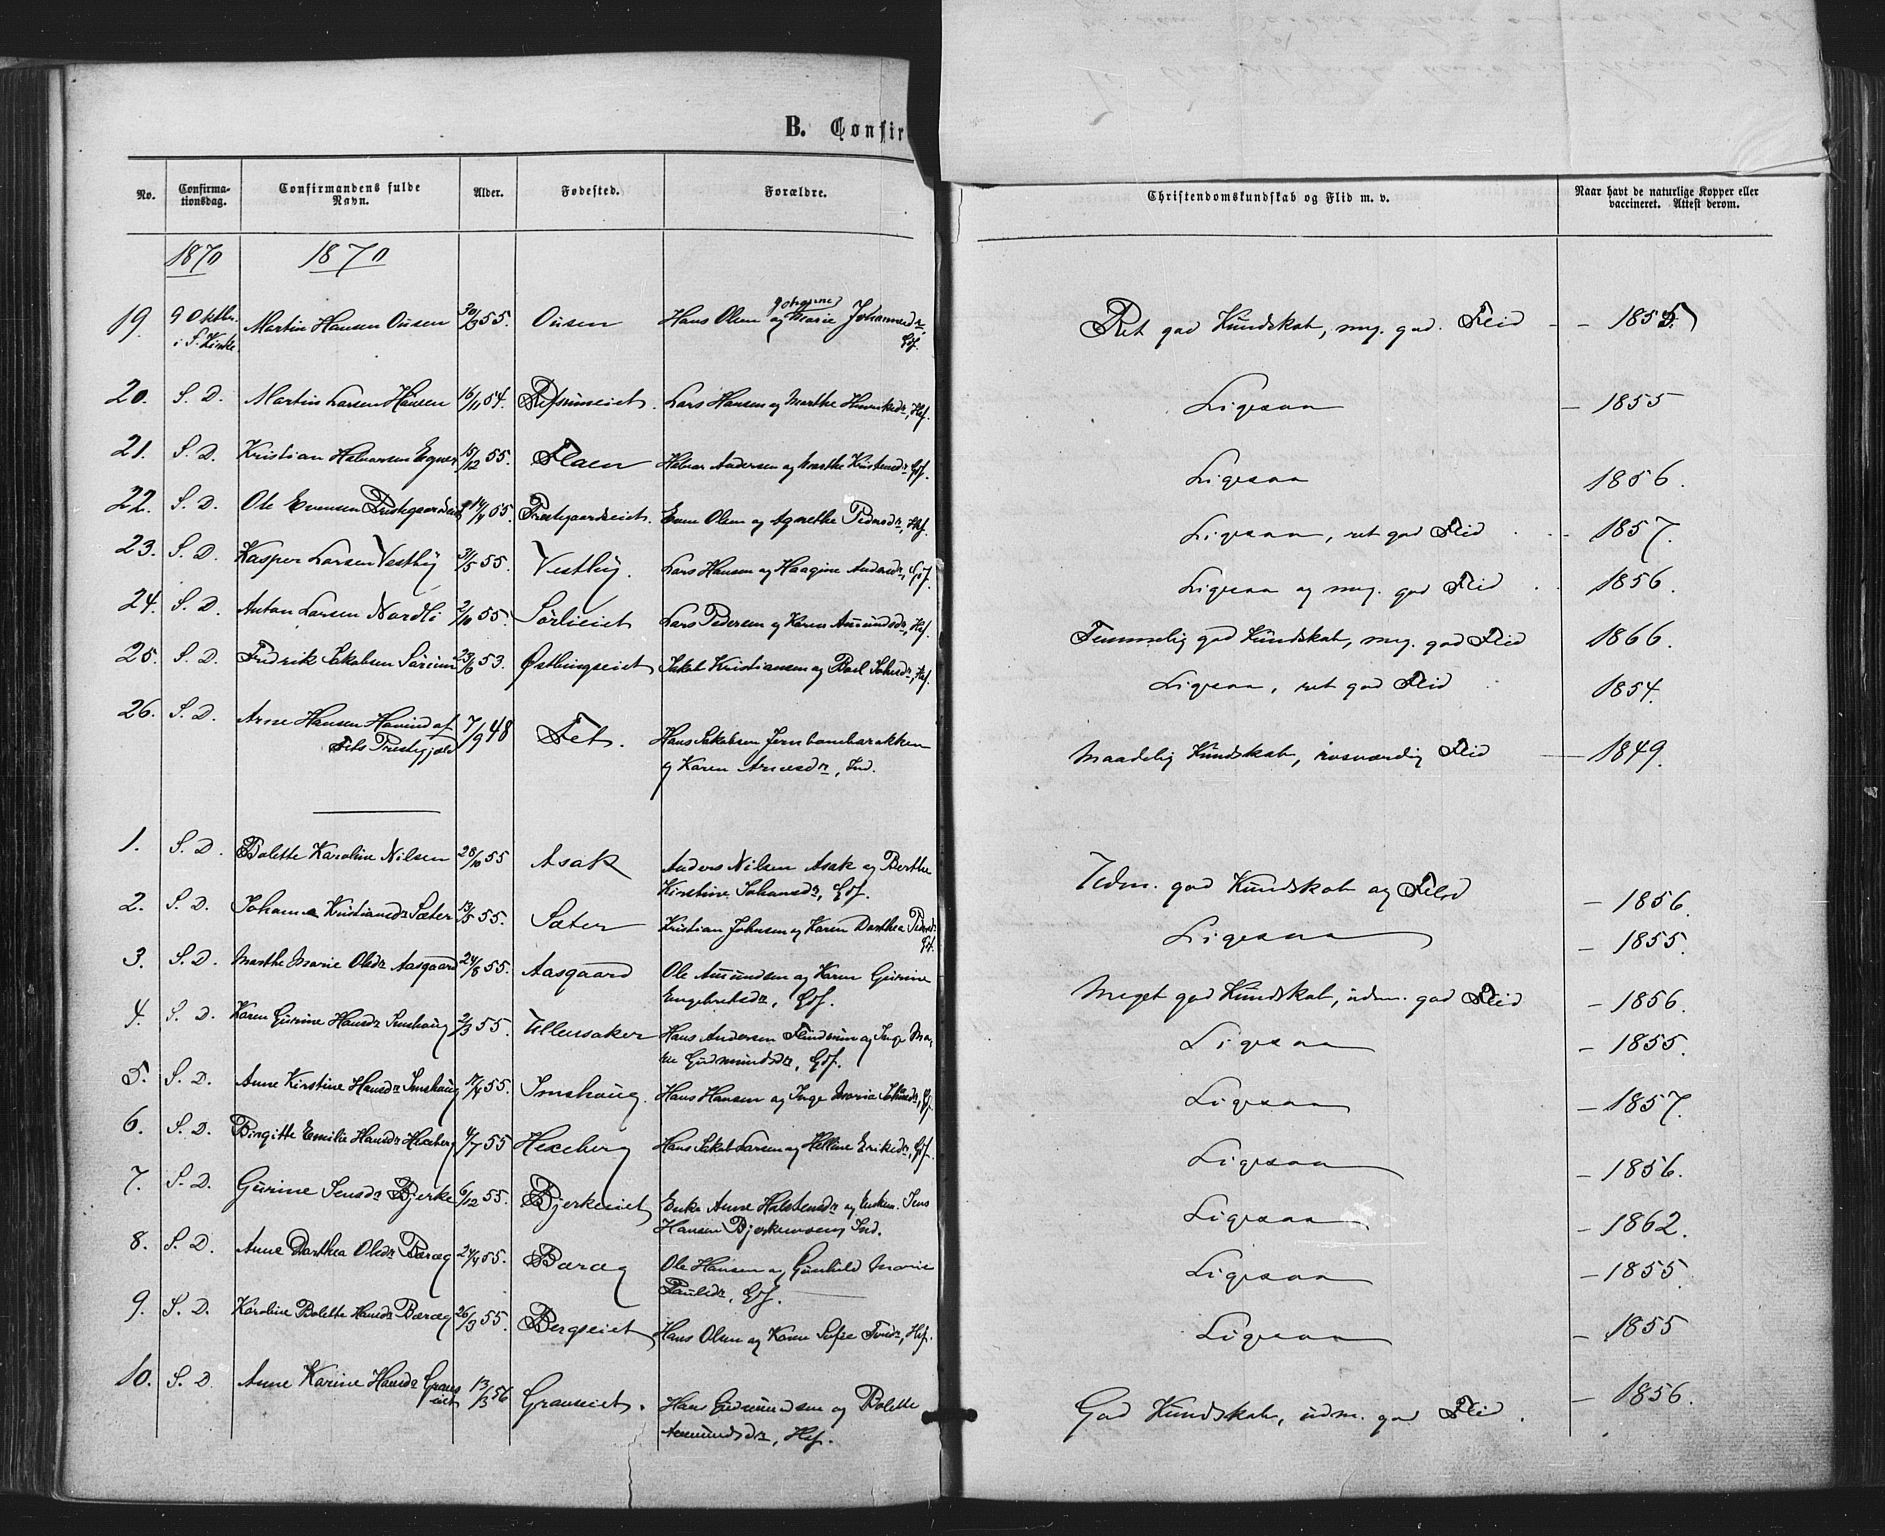 B. Confir
No.
Confirma-
tionsdag.
Confirmandens fulde
Navn.
Alder.
Fødested.
Forældre.
Christendomskundskab og Flid m. v.
Naar havt de naturlige Kopper eller
vaccineret. Attest derom.
1870 1870
19. 9 Oktbr. i S. Kirke Martin Hansen Ousen 30/9 55. Ousen Hans Olsen og Marie Johannesdr, Gdf. Ret god Kundskab, meg. god Flid - - 1855.
20. S. D. Martin Larsen Hansen 16/11 54. Refsumseiet. Lars Hansen og Marthe Henriksdr, Hsf. Ligesaa - 1855
21. S. D. Kristian Halvorsen Egner 15/12 55. Flaen Halvor Andersen og Marthe Kristensdr Gdf. Ligesaa 1856.
22. S. D. Ole Evensen Prestegaardseiet 14/4 55. Prestegaardseiet. Even Olsen og Agnethe Pedersdr, Hsf. Ligesaa, ret god Flid 1857.
23. S. D. Kasper Larsen Vestby 31/5 55. Vestby. Lars Hansen og Haagine Andersdr, Gdf. Ligesaa og meg. god Flid 1856.
24. S. D. Anton Larsen Nordli 2/10 55. Sørlieiet Lars Pedersen og Karen Amundsdr, Hsf. Temmelig god Kundskab, meg. god Flid 1866.
25. S. D. Fredrik Jakobsen Sørum 23/6 53. Østbyngseiet Jakob Kristiansen og Boel Johsdr, Hsf. Ligesaa, ret god Flid 1854.
26. S. D. Arne Hansen Hovind af 7/9 48 Fet. Hans Jakobsen Jernbanebarakken
Fets Prestegjæld og Karen Arnesdr, Ind. Maadelig Kundskab, rosværdig Flid - 1849.
1. S. D. Bolette Karoline Nilsen 28/10 55 Asak Anders Nilsen Asak og Berthe
Kirstine Johansdr, Gdf. Udm. god Kundskab og Flid - 1856.
2. S. D. Johanne Kristiansdr Sæter 13/5 55. Sæter Kristian Johnsen og Karen Dorthea Pedersdr Gdf. Ligesaa - 1855.
3. S. D. Marthe Marie Olsdr Aasgaard 24/8 55. Aasgaard Ole Amundsen og Karen Gurine
Engebretsdr, Gdf. Meget god Kundskab, udm. god Flid - 1856.
4. S. D. Karen Gurine Hansdr Imshaug 2/3 55. Ullensaker Hans Andersen Flinderum og Inge Ma-
rie Gudmundsdr, Gdf. Ligesaa - 1855.
5. S. D. Anne Kirstine Hansdr Imshaug 17/4 55. Imshaug. Hans Hansen og Inge Maria Johansdr, Gdf. Ligesaa - 1857.
6. S. D. Birgitte Emilie Hansdr Hexeberg 4/7 55 Hexeberg Hans Jakob Larsen og Helline Eriksdr, Gdf. Ligesaa - 1856.
7. S. D. Gurine Jensdr Bjerke 6/12 55. Bjerkeeiet Enke Anne Halstensdr og Enkem. Jens
Hansen Bjerkenseng Ind. Ligesaa - 1862.
8. S. D. Anne Dorthea Olsdr Barag 24/4 55. Barag Ole Hansen og Gunhild Marie
Paulsdr, Gdf. Ligesaa - 1855.
9. S. D. Karoline Bolette Hansdr Barag 26/3 55. Bergseiet Hans Olsen og Karen Sofie Torsdr, Hsf. Ligesaa - 1855
10. S. D. Anne Karine Hansdr Graus-
eiet 13/3 56 Grauseiet. Hans Gudmundsen og Bolette
Amundsdr, Hsf. God Kundskab, udm. god Flid. - 1856.